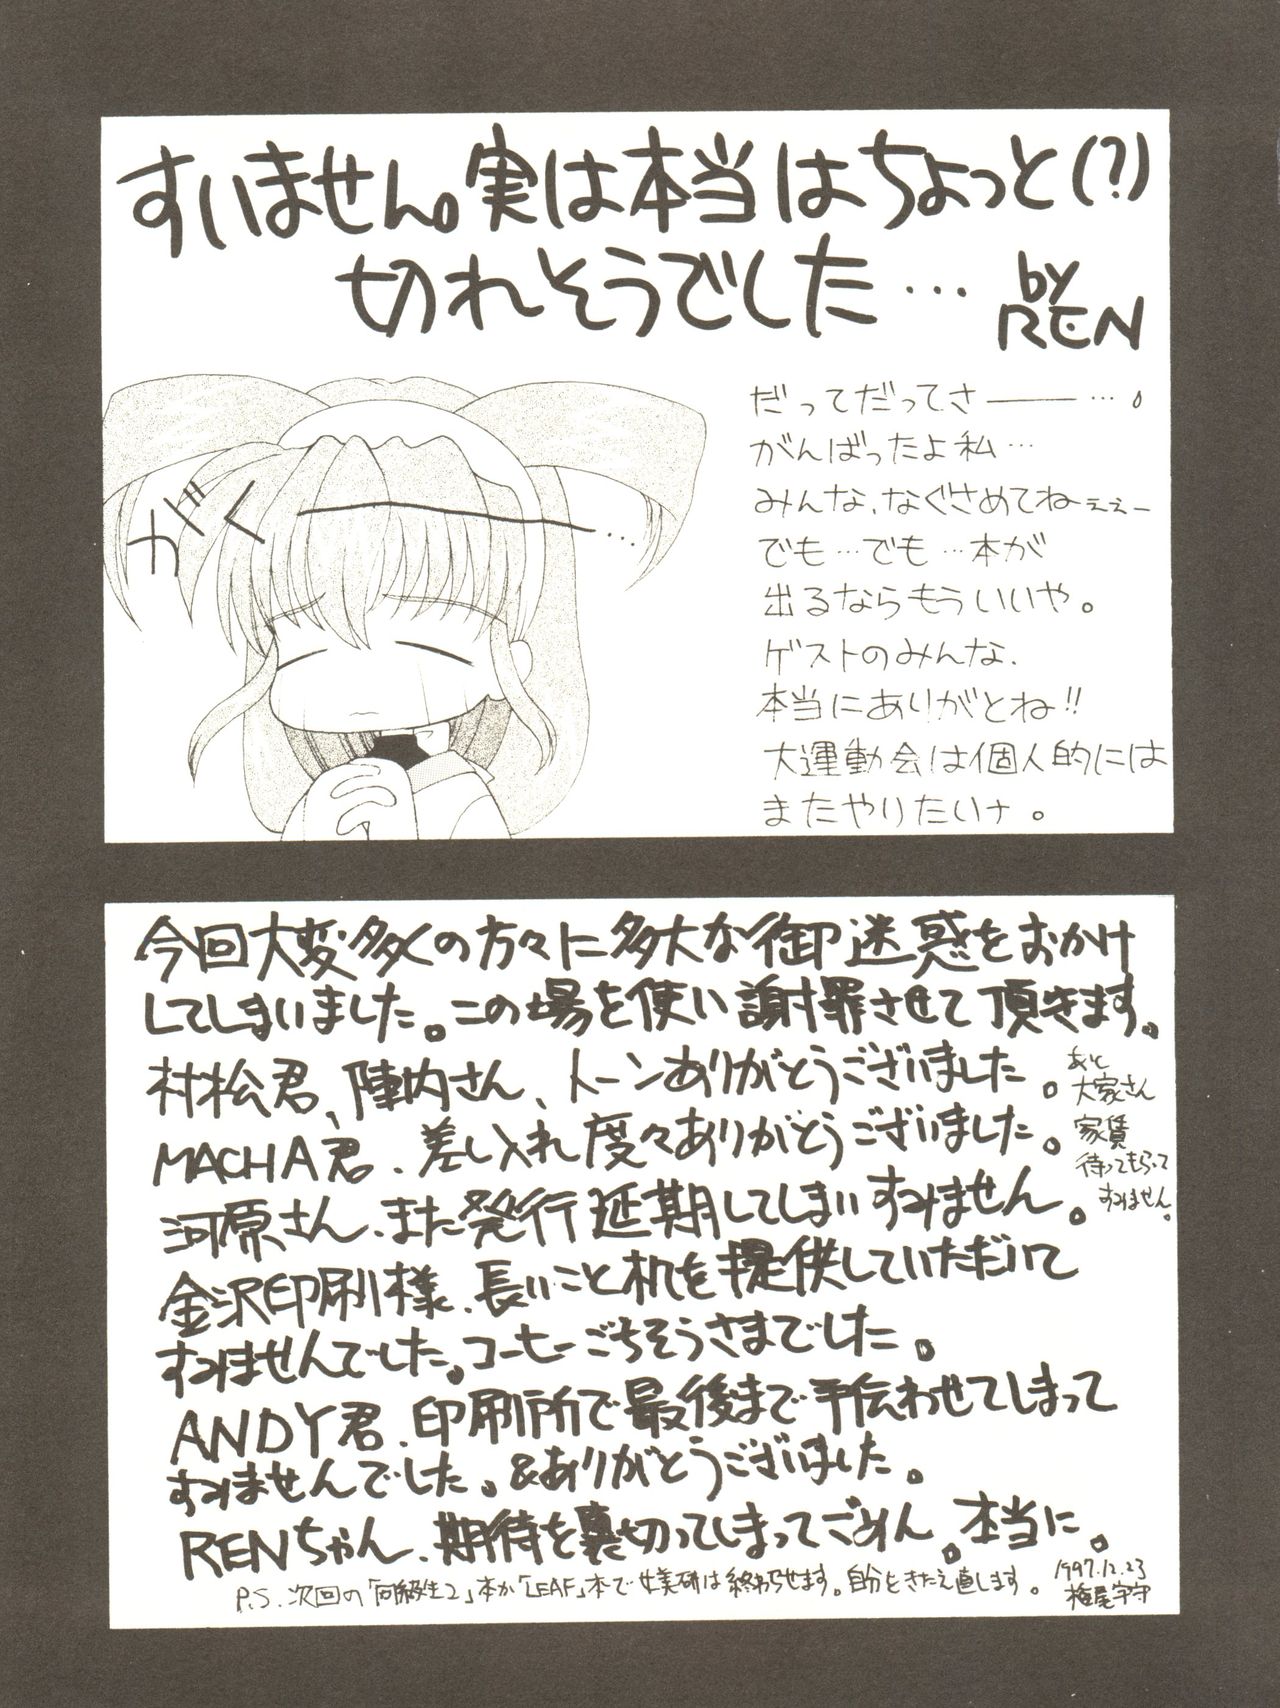 すいません。実は本当はちょっと(?)
切れそうでした…
by
REN
ガク
…
だってだってさ――…。
がんばったよ私…
みんな、なぐさめてねぇぇー
でも…でも…本が
出るならもういいや。
ゲストのみんな、
本当にありがとね!!
大運動会は個人的には
またやりたいナ。
今回大変多くの方々に多大な御迷惑をおかけ
してしまいました。この場を使い謝罪させて頂きます。
村松君、陣内さん、トーンありがとうございました。
MACHA君、差し入れ度々ありがとうございました。
河原さん、また発行延期してしまいすみません。
あと
大家さん
家賃
待ってもらって
すみません。
金沢印刷様、長いこと机を提供していただいて
すみませんでした。コーヒーごちそうさまでした。
ANDY君、印刷所で最後まで手伝わせてしまって
すみませんでした。&ありがとうございました。
RENちゃん、期待を裏切ってしまってごめん。本当に。
P.S.次回の「同級生2」本か「LEAF」本で女美研は終わらせます。自分をきたえ直します。
1997.12.23
梅尾宇守